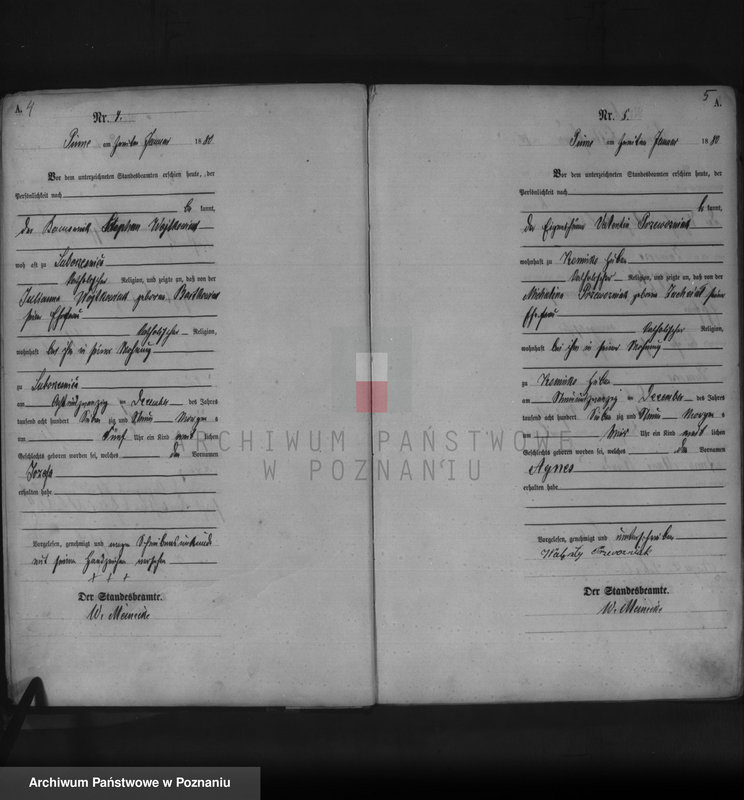 A. 4
Nr. 4.
Pinne am zweiten Januar 1880
Vor dem unterzeichneten Standesbeamten erschien heute, der
Persönlichkeit nach
be kannt,
der Stephan Wojtkowiak
wohnhaft zu
katholischer Religion, und zeigte an, daß von der
Julianna Wojtkowiak geborenen Bartkowiak
seiner Ehefrau
katholischer Religion,
wohnhaft bei ihm in seiner Wohnung
zu
am acht und zwanzig ten December des Jahres
tausend acht hundert sieben zig und neun Morgens
um fünf Uhr ein Kind weib lichen
Geschlechts geboren worden sei, welches den Vornamen
Jozefa
erhalten habe
Vorgelesen, genehmigt und wegen Schreibensunkunde
mit seinem Handzeichen versehen
+ + +
Der Standesbeamte.
W. Meinecke
5
A.
Nr. 5.
Pinne am zweiten Januar 1880
Vor dem unterzeichneten Standesbeamten erschien heute, der
Persönlichkeit nach
be kannt,
der Eigenthümer Valentin Przewozniak
wohnhaft zu
katholischer Religion, und zeigte an, daß von der
Michalina Przewozniak geborenen seiner
Ehefrau
katholischer Religion,
wohnhaft bei ihm in seiner Wohnung
zu
am neun und zwanzig ten December des Jahres
tausend acht hundert sieben zig und neun Morgens
um vier Uhr ein Kind weib lichen
Geschlechts geboren worden sei, welches den Vornamen
Agnes
erhalten habe
Vorgelesen, genehmigt und unterschrieben
Der Standesbeamte.
W. Meinecke
ARCHIWUM PAŃSTWOWE
W POZNANIU
Archiwum Państwowe w Poznaniu